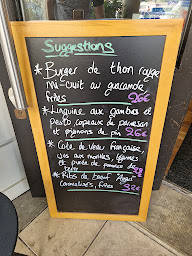 Suggestions
* Burger de thon rouge
mi-cuit au guacamole
frites 26€
* Linguine aux gambas et
pesto, copeaux de parmesan
et pignons de pin 26€
* Cote de Veau française,
jus aux morilles, légumes
et purée de pommes de
terre
* Ribs de boeuf Angus
Caramélisés, frites 32€